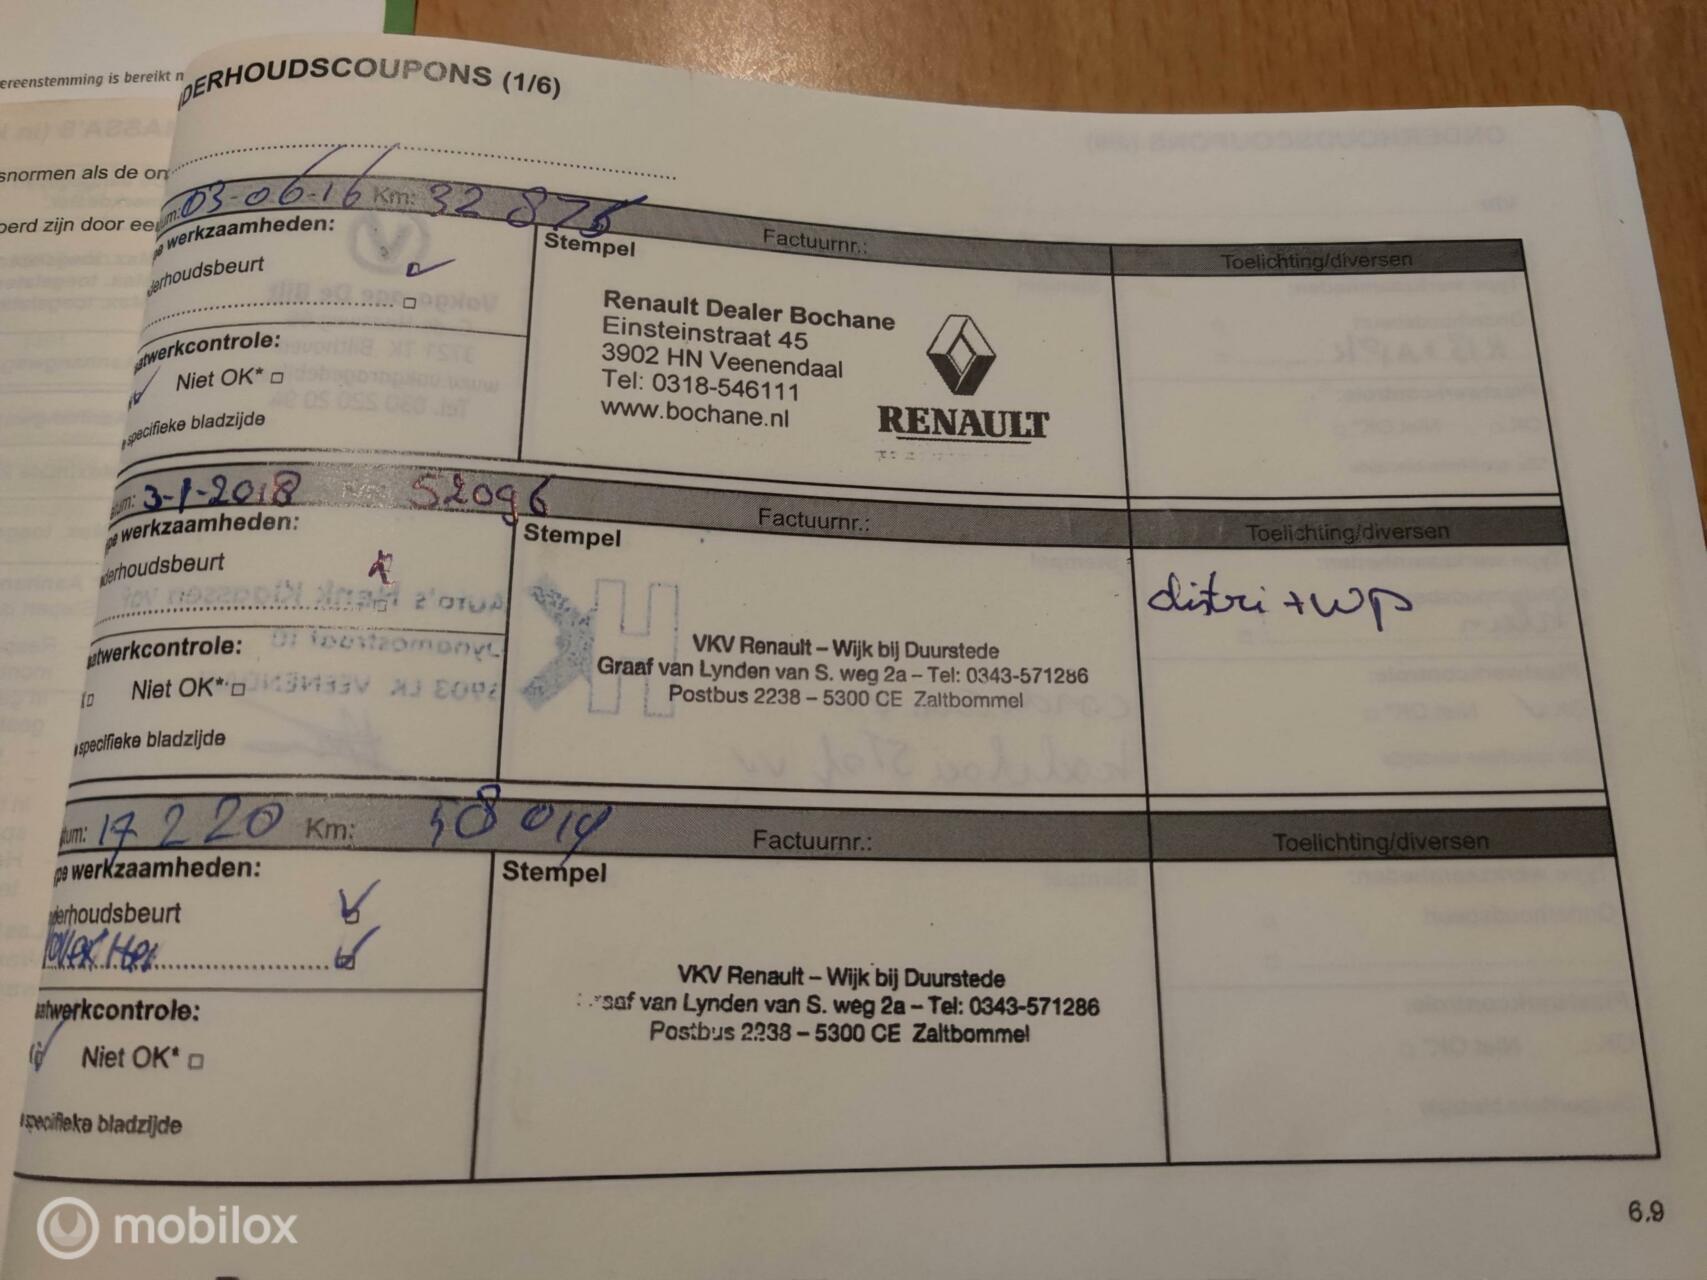 ereenstemming is bereikt
snormen als de on
oerd zijn door ee
DERHOUDSCOUPONS (1/6)
03-06-16 Km: 32 875 Factuurnr.: Toelichting/diversen
pe werkzaamheden:
derhoudsbeurt
aatwerkcontrole:
Niet OK*
specifieke bladzijde
Stempel
Renault Dealer Bochane
Einsteinstraat 45
3902 HN Veenendaal
Tel: 0318-546111
www.bochane.nl
RENAULT
tum: 3-1-2018 Km: 52096 Factuurnr.: Toelichting/diversen
pe werkzaamheden:
derhoudsbeurt
aatwerkcontrole:
Niet OK*
specifieke bladzijde
Stempel
VKV Renault – Wijk bij Duurstede
Graaf van Lynden van S. weg 2a – Tel: 0343-571286
Postbus 2238 – 5300 CE Zaltbommel
distri + wp
tum: 17 2 20 Km: 58 014 Factuurnr.: Toelichting/diversen
pe werkzaamheden:
derhoudsbeurt
aatwerkcontrole:
Niet OK*
specifieke bladzijde
Stempel
VKV Renault – Wijk bij Duurstede
raaf van Lynden van S. weg 2a – Tel: 0343-571286
Postbus 2238 – 5300 CE Zaltbommel
6.9
mobilox